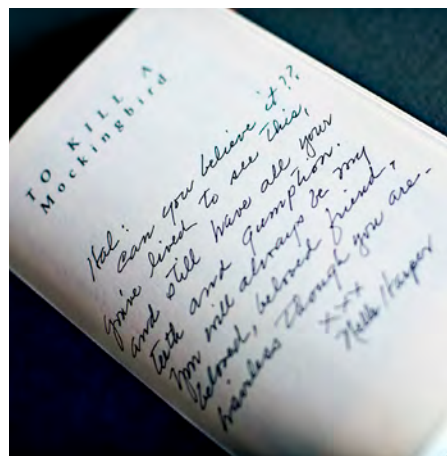 TO KILL A
Mockingbird
Hal:
can you believe it??
you've lived to see this,
and still have all your
teeth and gumption.
You will always be my
beloved, beloved friend,
hairless though you are.
xxx
Nelle Harper